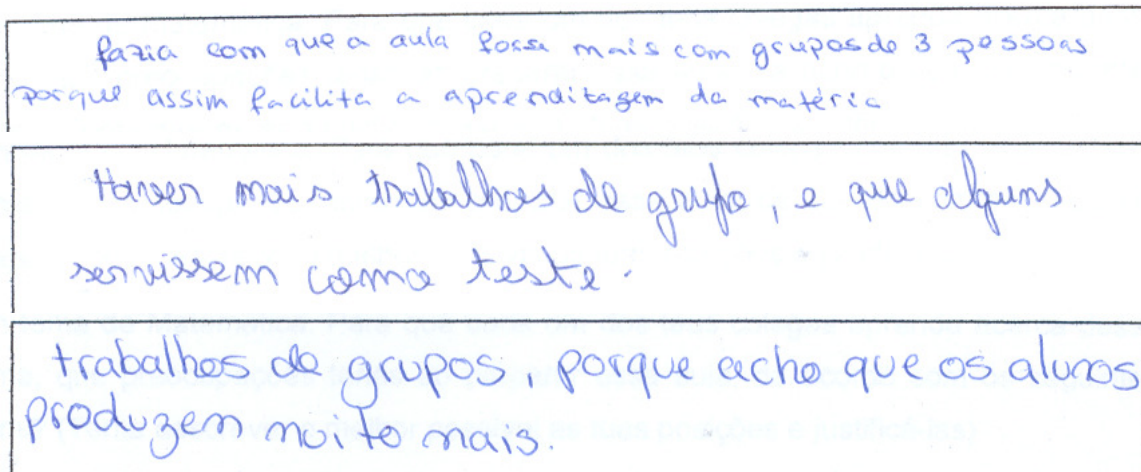 fazia com que a aula fosse mais com grupos de 3 pessoas
porque assim facilita a aprenditagem da matéria
Haver mais trabalhos de grupo, e que alguns
servissem como teste.
trabalhos de grupos, porque acho que os alunos
produzem muito mais.